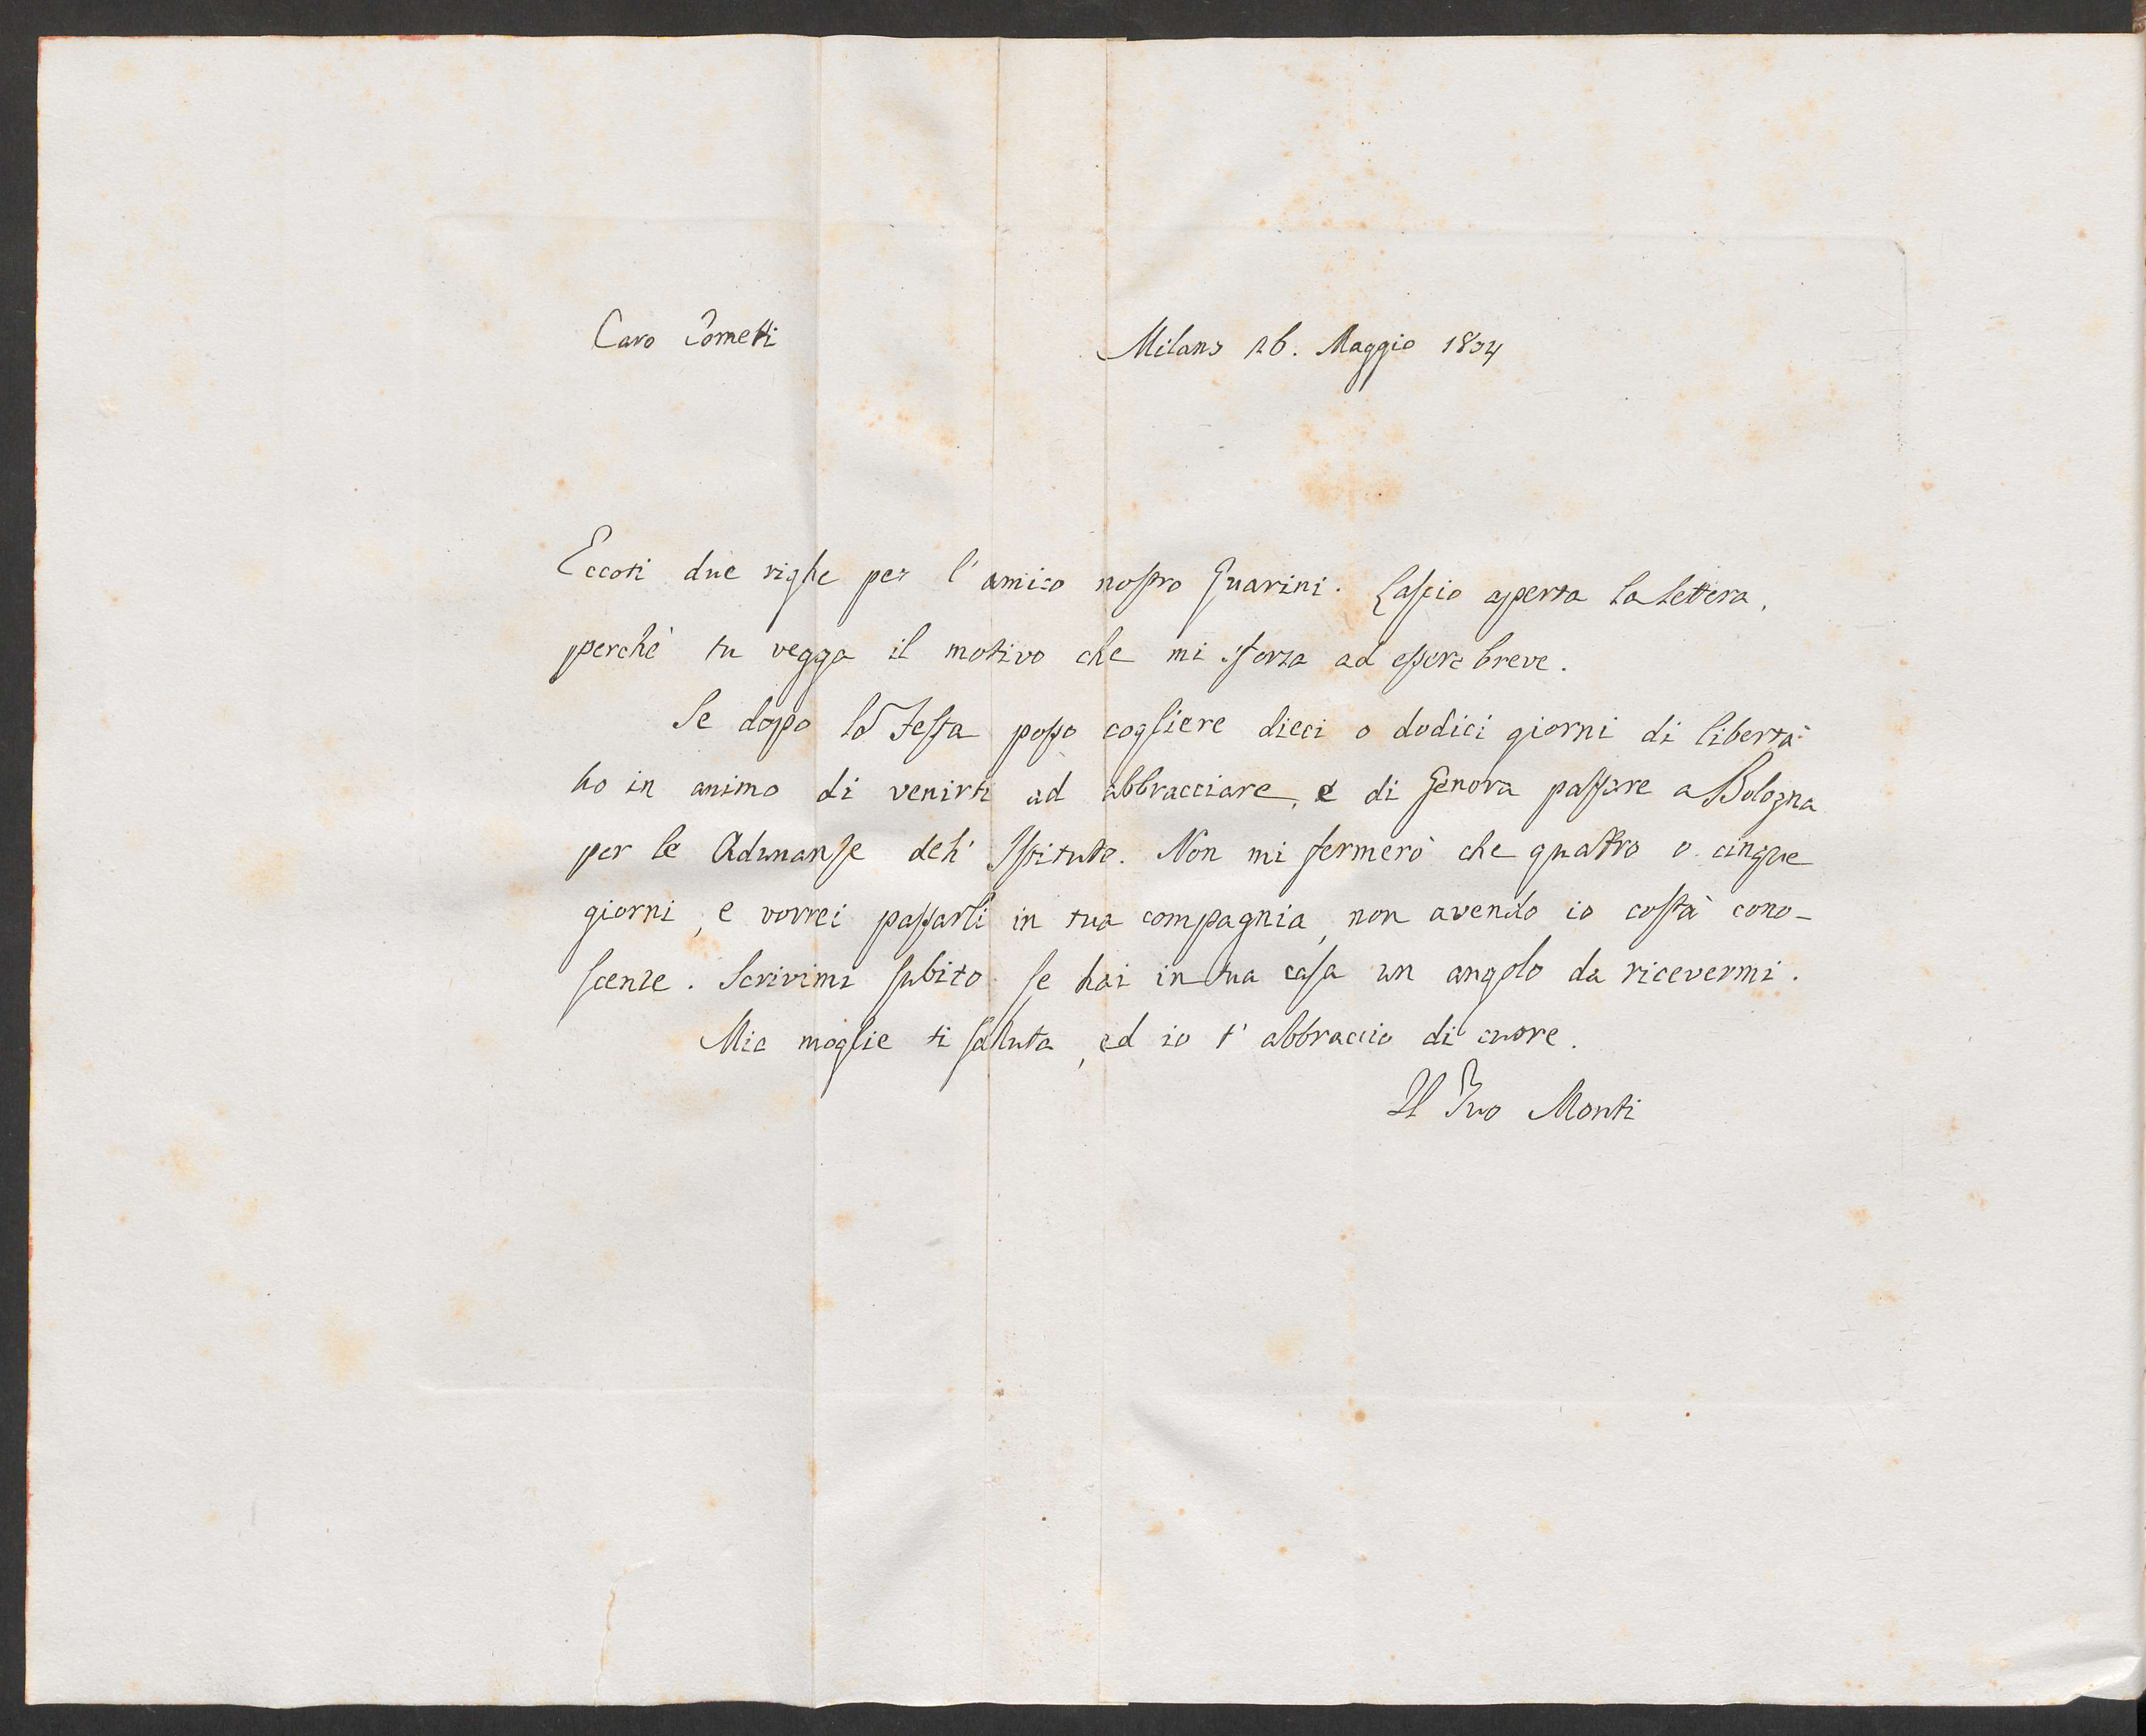 Caro Cometti
Milano 26. Maggio 1804
Eccoti due righe per l'amico nostro Guarini. Lascio aperta la lettera,
perchè tu vegga il motivo che mi sforza ad essere breve.
Se dopo la Festa posso cogliere dieci o dodici giorni di libertà
ho in animo di venirti ad abbracciare, e di Genova passare a Bologna
per le Adunanze dell' Istituto. Non mi fermerò che quattro o cinque
giorni, e vorrei passarli in tua compagnia, non avendo io costà cono-
scenze. Scrivimi subito se hai in tua casa un angolo da ricevermi.
Mia moglie ti saluta, ed io t' abbraccio di cuore.
Il Tuo Monti